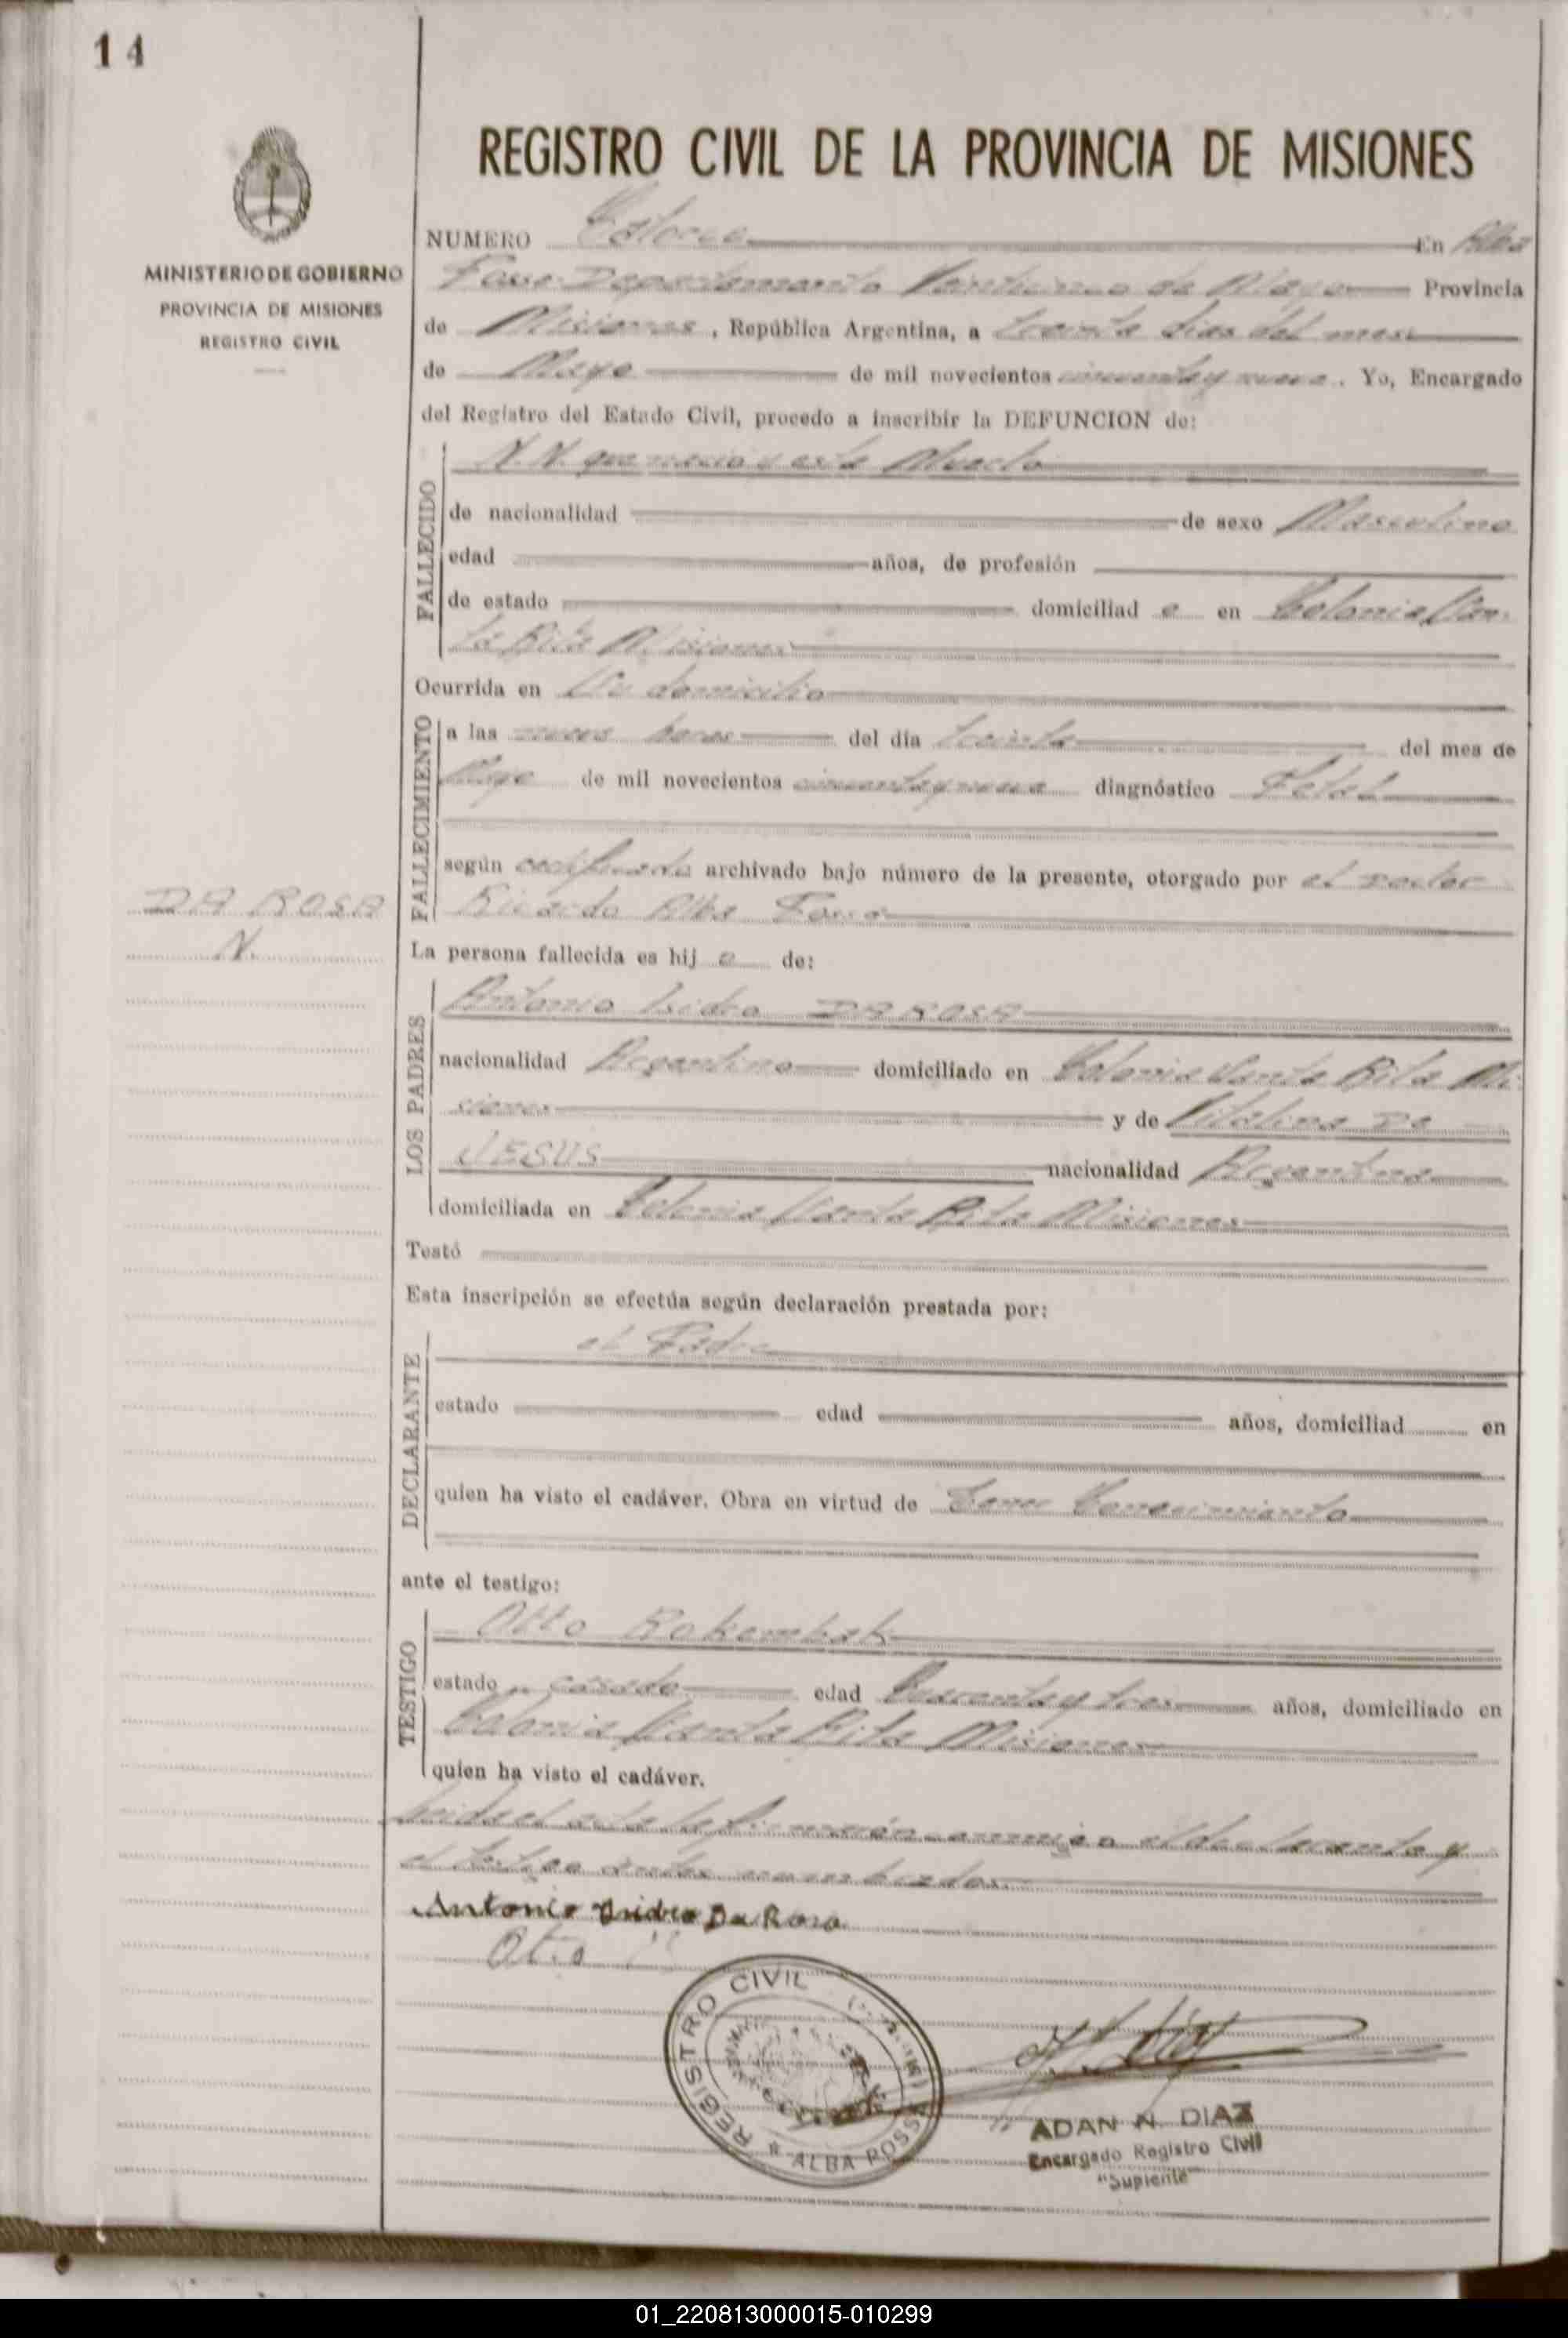 14
REGISTRO CIVIL DE LA PROVINCIA DE MISIONES
MINISTERIO DE GOBIERNO
PROVINCIA DE MISIONES
REGISTRO CIVIL
NUMERO Catorce En Alba
Posse Departamento Veinticinco de Mayo Provincia
de Misiones, República Argentina, a treinta dias del mes
de Mayo de mil novecientos cincuenta y nueve. Yo, Encargado
del Registro del Estado Civil, procedo a inscribir la DEFUNCION de:
FALLECIDO
N.N. que nacio y esta Muerto
de nacionalidad de sexo Masculino
edad años, de profesión
de estado domiciliad o en Colonia San-
ta Rita Misiones
Ocurrida en Su domicilio
FALLECIMIENTO
a las nueve horas del día treinta del mes de
Mayo de mil novecientos cincuenta y nueve diagnóstico Fetal
según certificado archivado bajo número de la presente, otorgado por el Doctor
Ricardo Alba
DA ROSA
N.
La persona fallecida es hij o de:
LOS PADRES
Antonio Isidro DA ROSA
nacionalidad Argentino domiciliado en Colonia Santa Rita Mi-
siones y de Vitalina DE
JESUS nacionalidad Argentina
domiciliada en Colonia Santa Rita Misiones
Testó
Esta inscripción se efectúa según declaración prestada por:
DECLARANTE
el Padre
estado edad años, domiciliad en
quien ha visto el cadáver. Obra en virtud de Conocimiento
ante el testigo:
TESTIGO
Otto Rokembak
estado casado edad Cuarenta y tres años, domiciliado en
Colonia Santa Rita Misiones
quien ha visto el cadáver.
Leida el acta la firmarón conmigo el declarante y
el testigo antes nombrados.
Antonio Isidro Da Rosa
Otto
REGISTRO CIVIL
ALBA POSSE
ADAN N. DIAZ
Encargado Registro Civil
"Suplente"
01_220813000015-010299